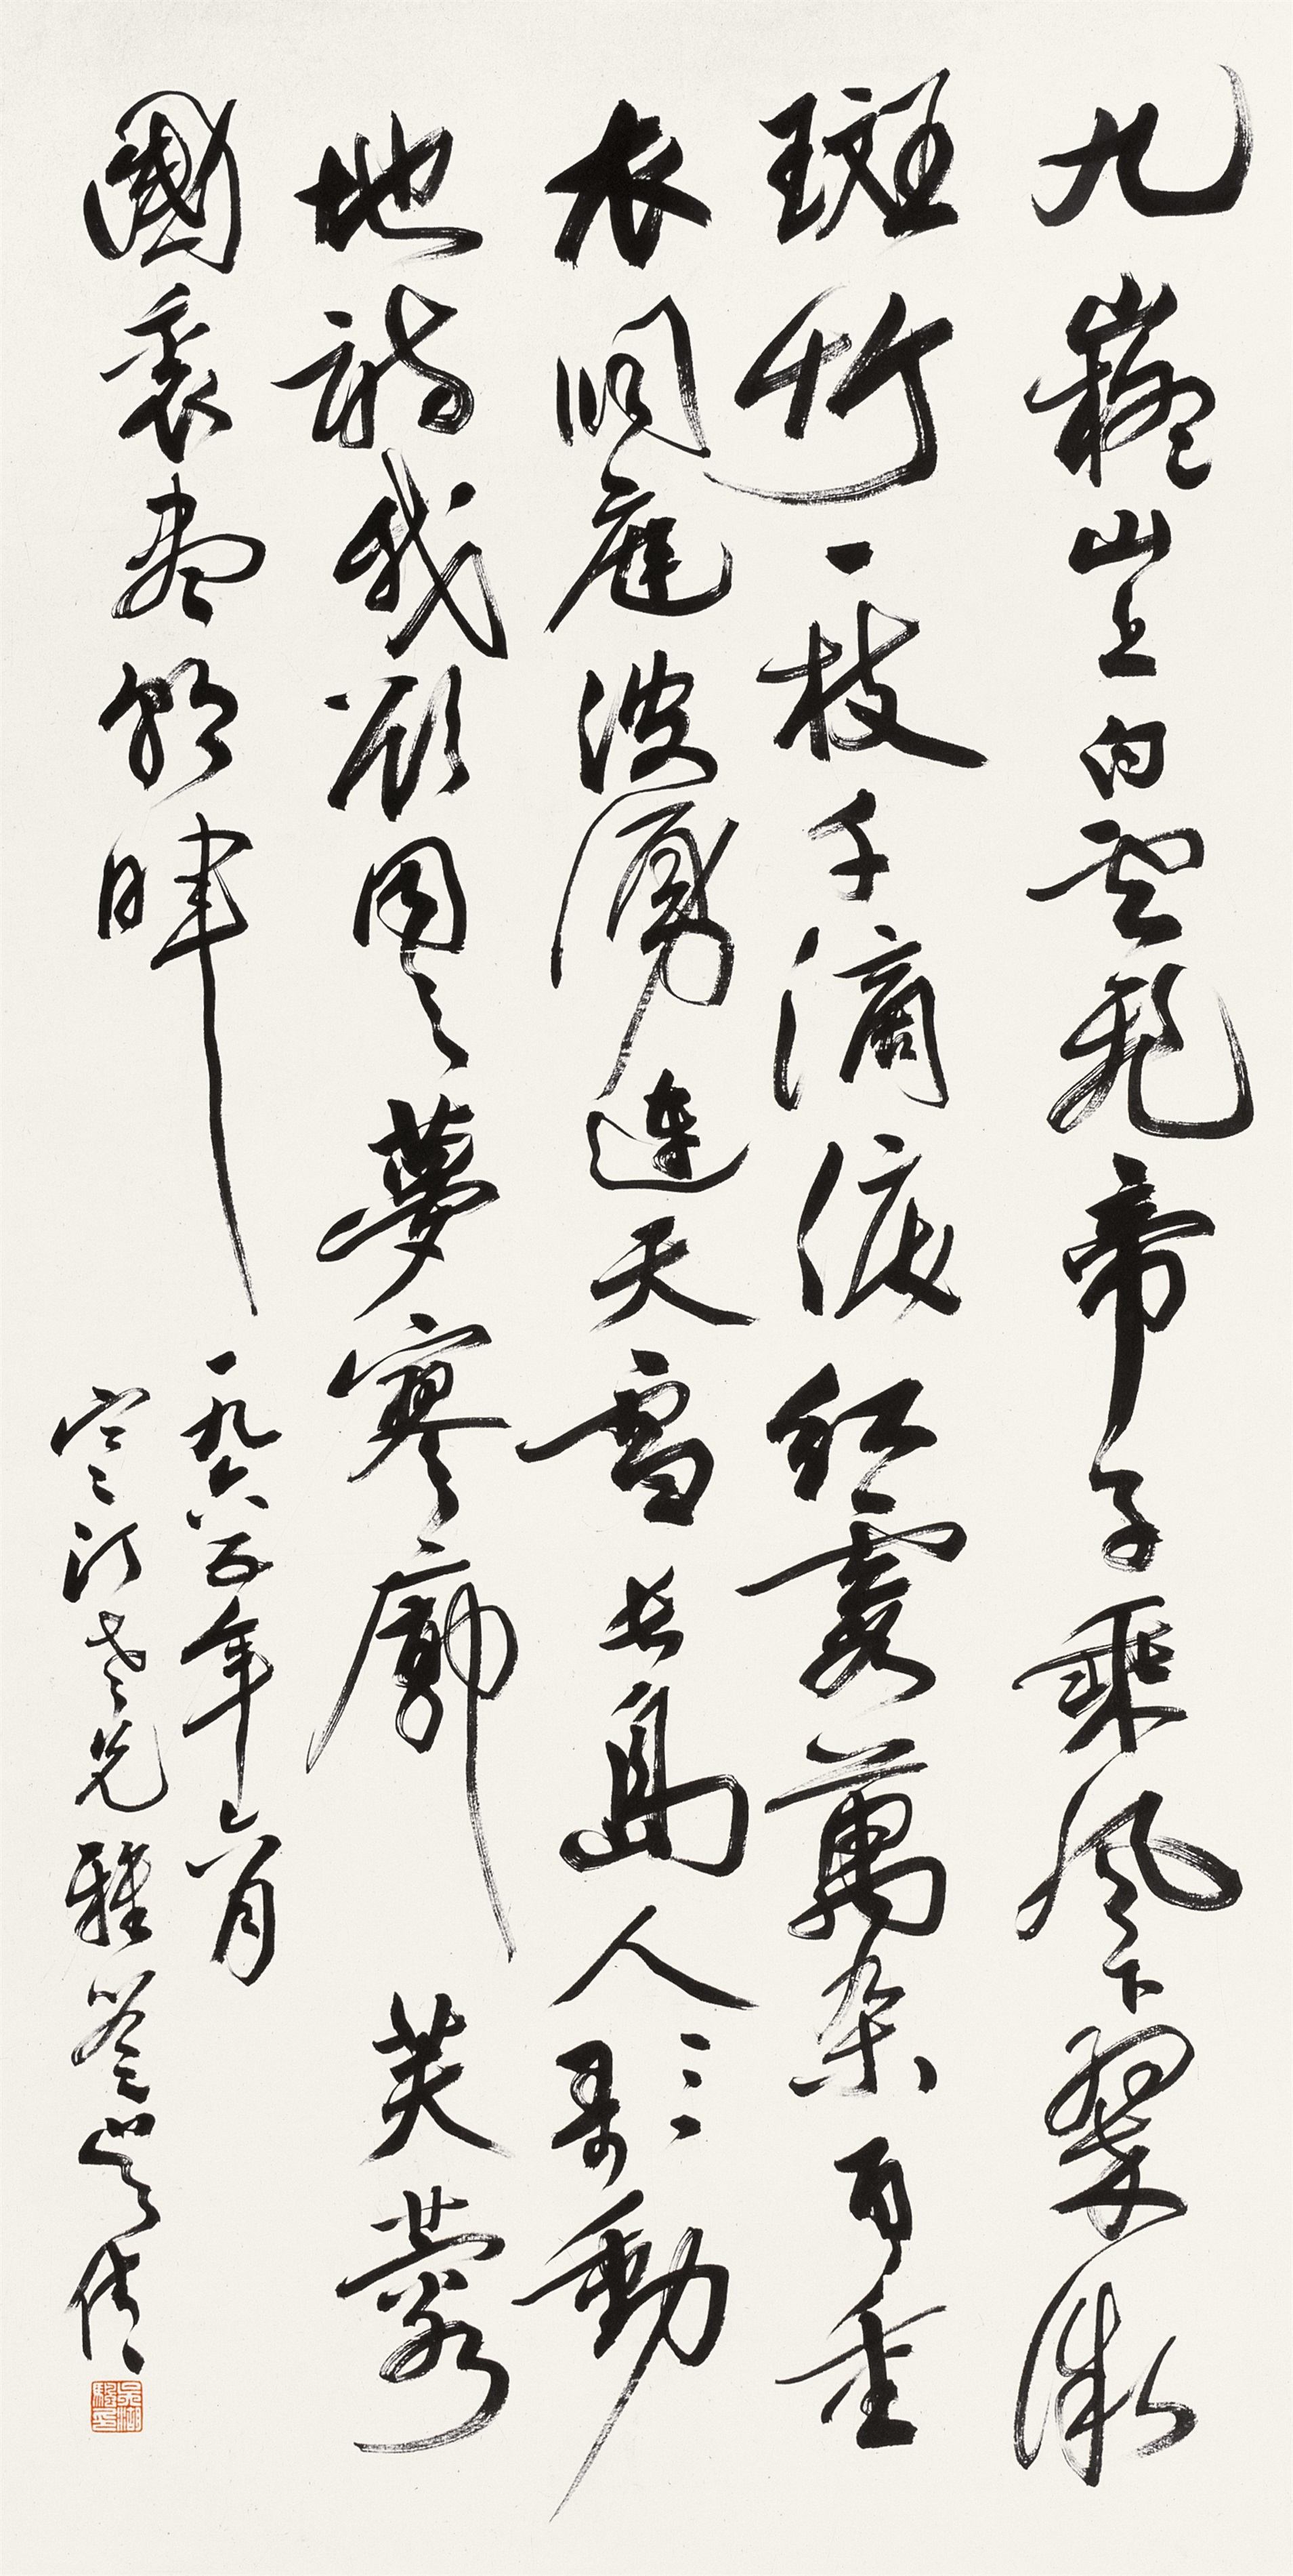 九嶷山上白雲飛帝子乘風下翠微
斑竹一枝千滴淚紅霞萬朵百重
衣洞庭波湧連天雪長島人歌動
地詩我欲因之夢寥廓芙蓉
國裏盡朝暉
一九六五年六月
寒汀老兄雅鑒吳倩
吳湖颿印